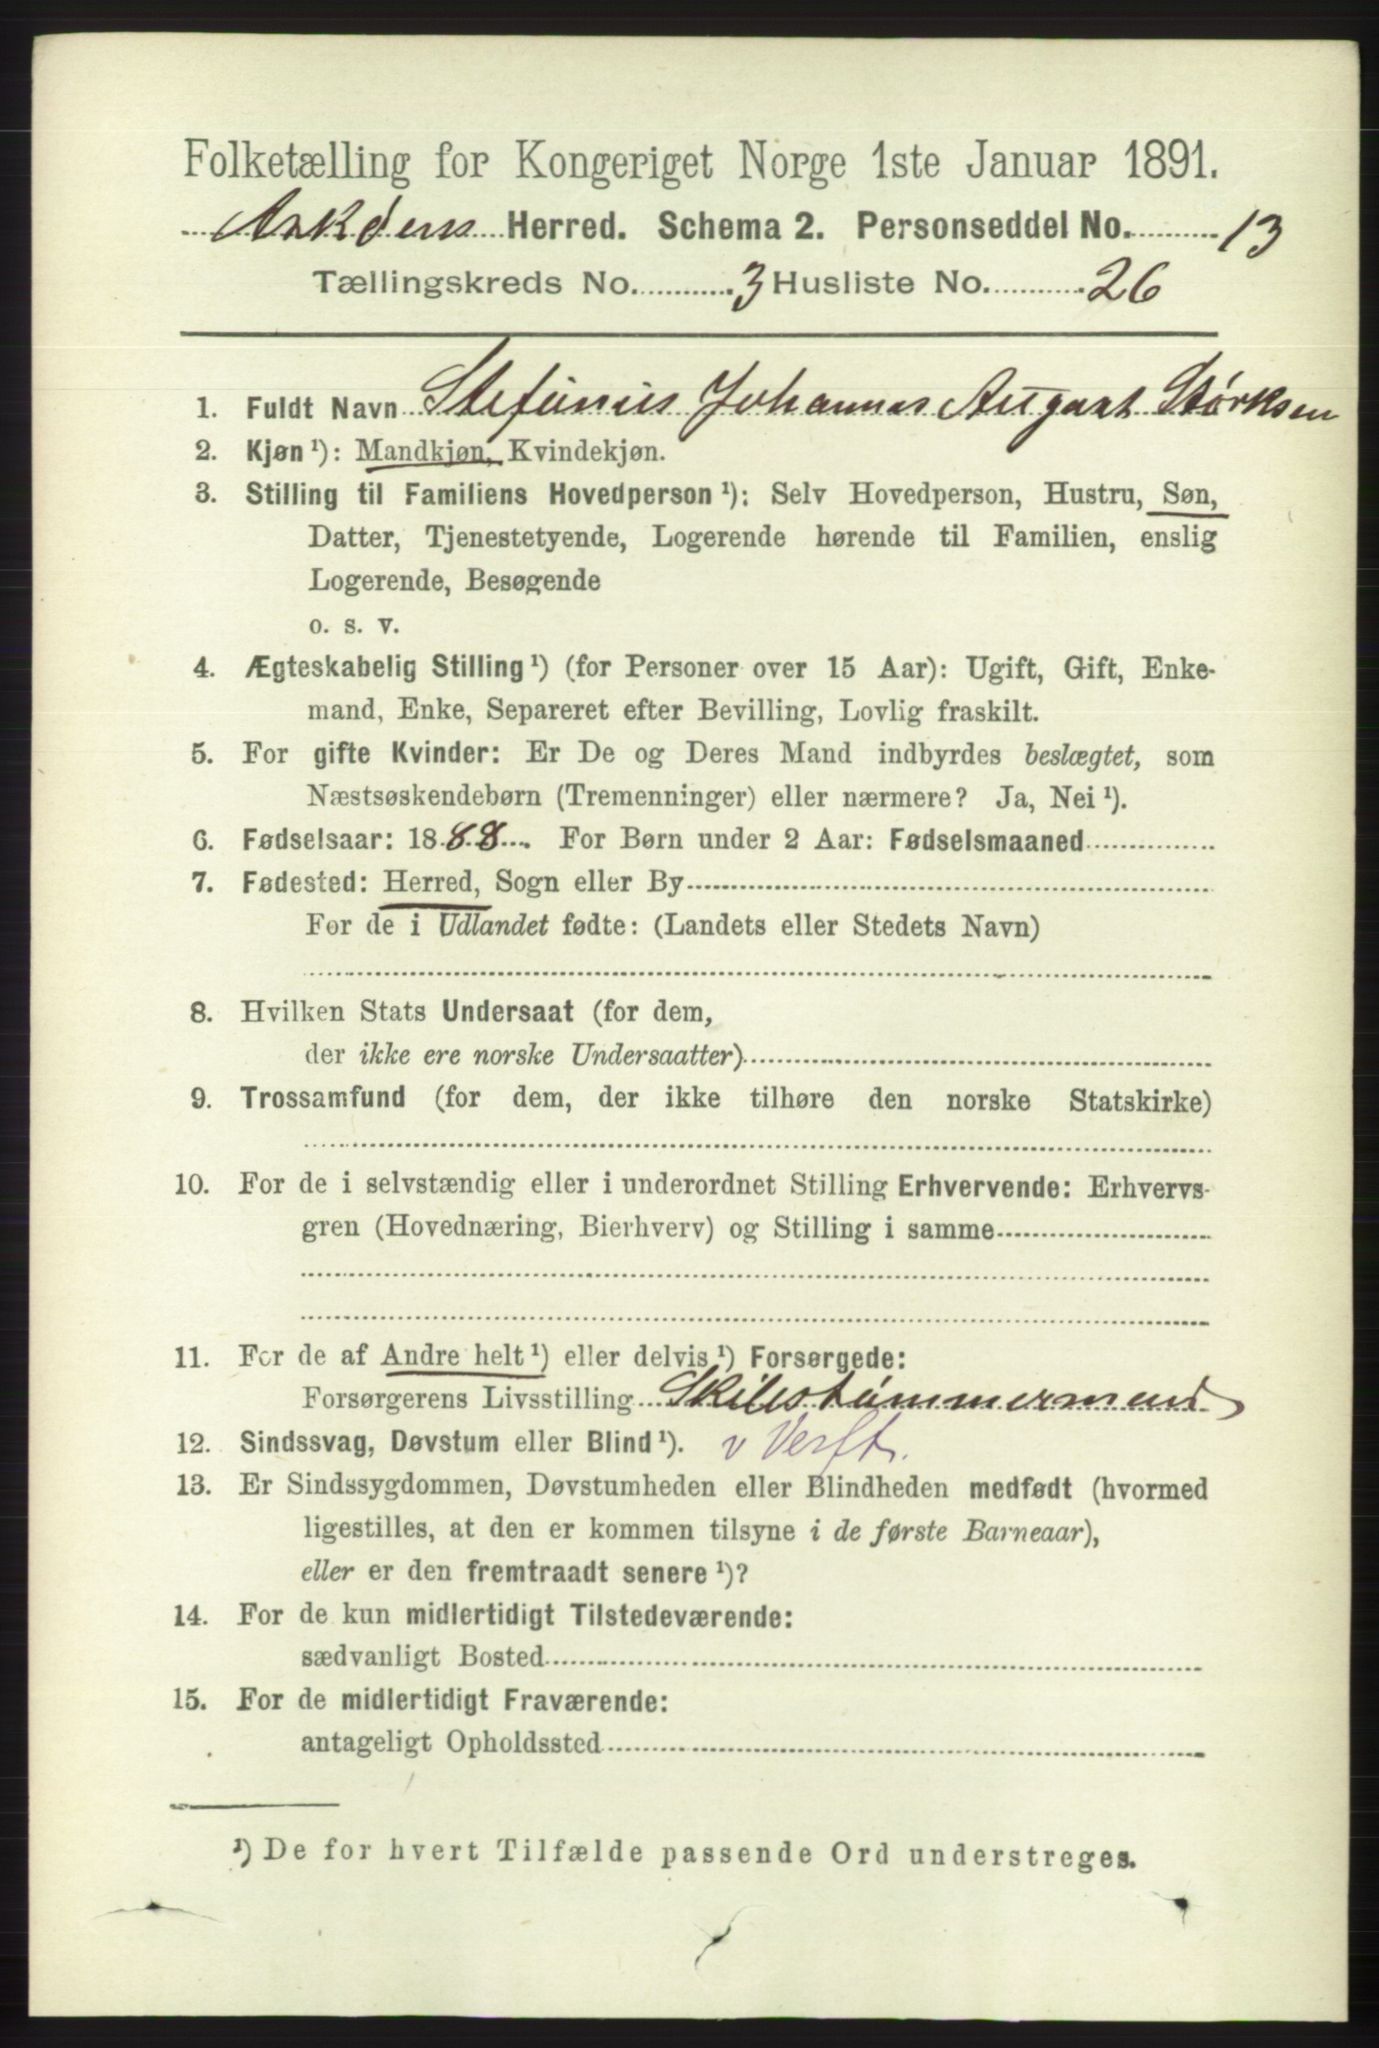 Folketælling for Kongeriget Norge 1ste Januar 1891.
Askøens Herred. Schema 2. Personseddel No. 13
Tællingskreds No. 3 Husliste No. 26
1. Fuldt Navn Stefanus Johannes August Størksen
2. Kjøn ¹): Mandkjøn, Kvindekjøn.
3. Stilling til Familiens Hovedperson ¹): Selv Hovedperson, Hustru, Søn,
Datter, Tjenestetyende, Logerende hørende til Familien, enslig
Logerende, Besøgende
o. s. v.
4. Ægteskabelig Stilling ¹) (for Personer over 15 Aar): Ugift, Gift, Enke-
mand, Enke, Separeret efter Bevilling, Lovlig fraskilt.
5. For gifte Kvinder: Er De og Deres Mand indbyrdes beslægtet, som
Næstsøskendebørn (Tremenninger) eller nærmere? Ja, Nei ¹).
6. Fødselsaar: 1888. For Børn under 2 Aar: Fødselsmaaned
7. Fødested: Herred, Sogn eller By
For de i Udlandet fødte: (Landets eller Stedets Navn)
8. Hvilken Stats Undersaat (for dem,
der ikke ere norske Undersaatter)
9. Trossamfund (for dem, der ikke tilhøre den norske Statskirke)
10. For de i selvstændig eller i underordnet Stilling Erhvervende: Erhvervs-
gren (Hovednæring, Bierhverv) og Stilling i samme
11. For de af Andre helt ¹) eller delvis ¹) Forsørgede:
Forsørgerens Livsstilling Skibstømmermand
12. Sindssvag, Døvstum eller Blind ¹). v Verft.
13. Er Sindssygdommen, Døvstumheden eller Blindheden medfødt (hvormed
ligestilles, at den er kommen tilsyne i de første Barneaar),
eller er den fremtraadt senere ¹)?
14. For de kun midlertidigt Tilstedeværende:
sædvanligt Bosted
15. For de midlertidigt Fraværende:
antageligt Opholdssted
¹) De for hvert Tilfælde passende Ord understreges.